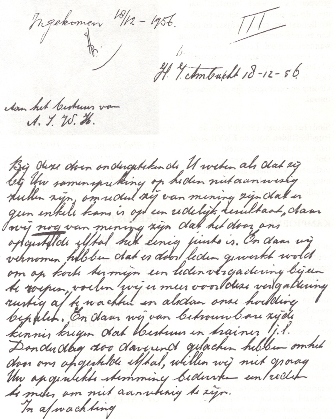 Ingekomen 18/12-1956.
III
H. I. Ambacht 18-12-56
Aan het bestuur van
A.S.W.H.
Bij deze doen ondergetekende U weten als dat zij
bij Uw samenspreking op heden niet aanwezig
zullen zijn, om reden zij van mening zijn dat er
geen enkele kans is op een redelijk resultaat, daar
wij nog van mening zijn dat het door ons
opgestelde elftal het enig juiste is. En daar wij
vernomen hebben dat er door leden gewerkt wordt
om op korte termijn een ledenvergadering bijeen
te roepen, voelen wij er meer voor deze vergadering
rustig af te wachten en aldaar onze houding
bepalen. En daar wij van betrouwbare zijde
kennis kregen dat bestuur en trainer j.l.
Donderdag zoo daverend gelachen hebben om het
door ons opgestelde elftal, willen wij niet graag
Uw opgewekte stemming bederven en reden
te meer om niet aanwezig te zijn.
In afwachting